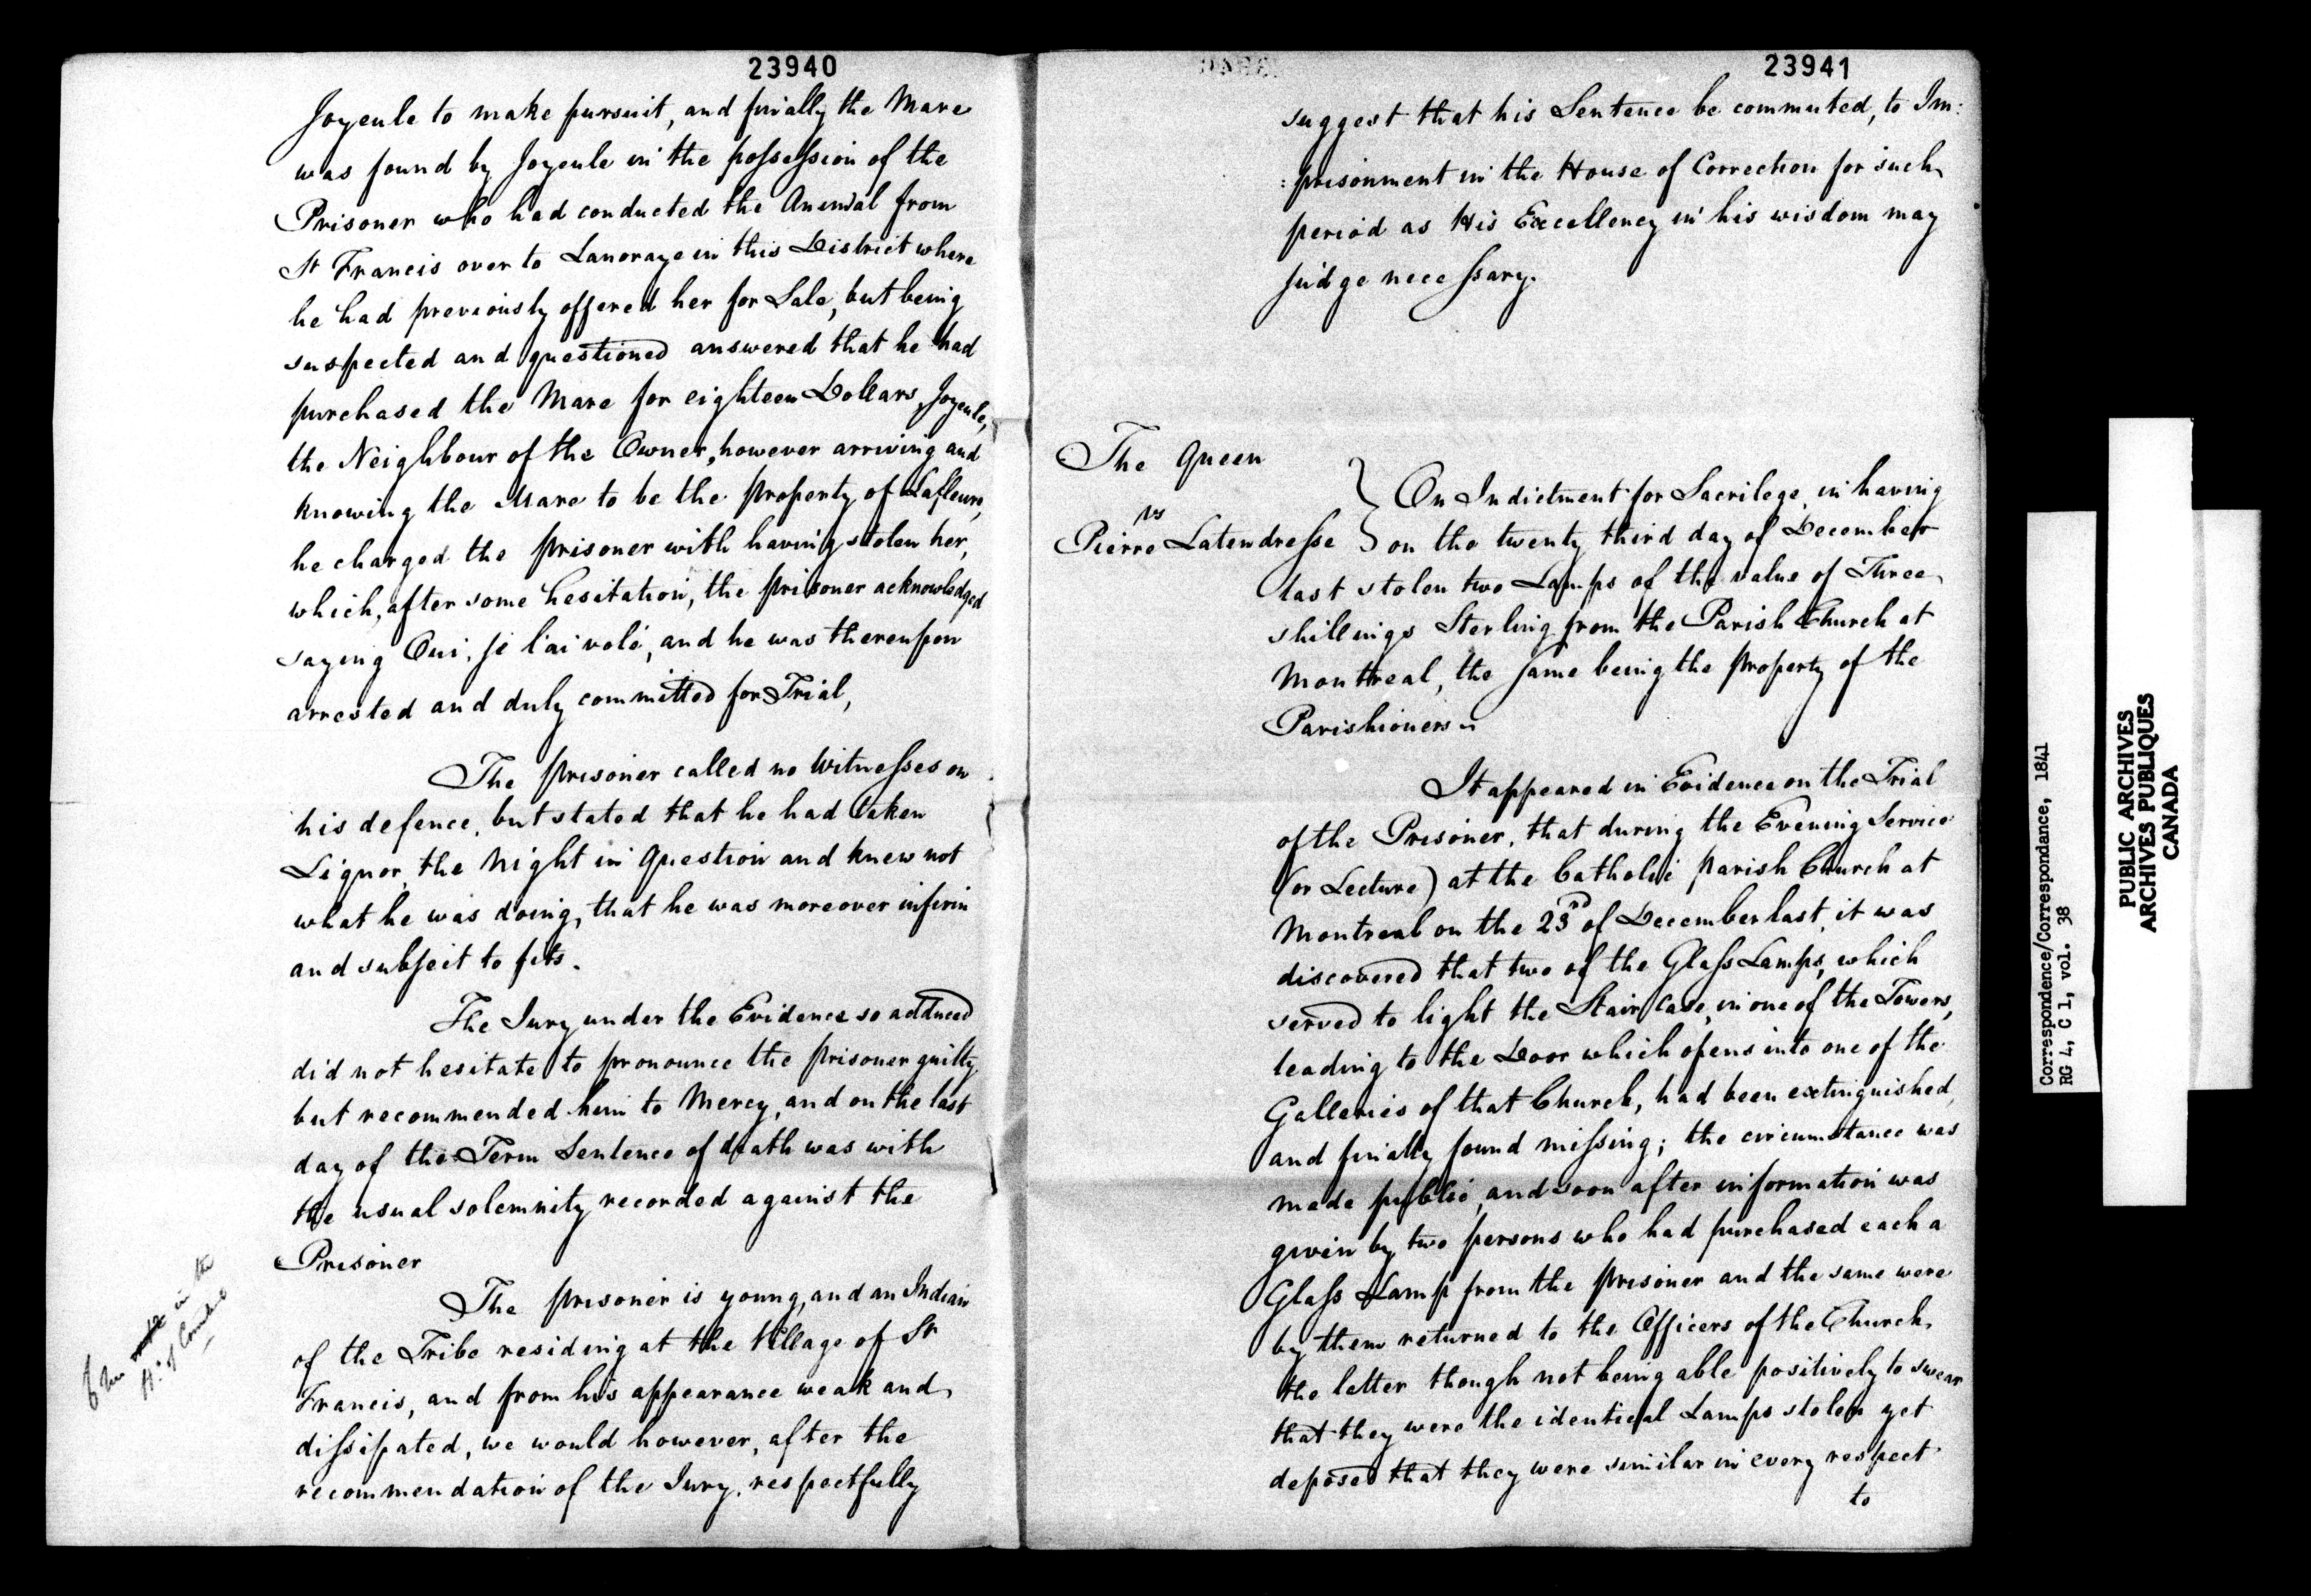 23940
Joyeule to make pursuit, and finally the Mare
was found by Joyeule in the possession of the
Prisoner who had conducted the Animal from
St Francis over to Lanoraye in this District where
he had previously offered her for Sale, but being
suspected and questioned answered that he had
purchased the Mare for eighteen Dollars, Joyeule,
the Neighbour of the Owner, however arriving and
knowing the Mare to be the property of Lafleure,
he charged the prisoner with having stolen her,
which, after some hesitation, the prisoner acknowledged
saying Oui, je l'ai volé, and he was thereupon
arrested and duly committed for Trial,
The prisoner called no Witnesses on
his defence, but stated that he had taken
Liquor, the Night in Question and knew not
what he was doing, that he was moreover infirm
and subject to fits.
The Jury under the Evidence so adduced
did not hesitate to pronounce the prisoner guilty,
but recommended him to Mercy, and on the last
day of the Term Sentence of death was with
the usual solemnity recorded against the
Prisoner
The prisoner is young, and an Indian
of the Tribe residing at the Village of St
Francis, and from his appearance weak and
dissipated, we would however, after the
recommendation of the Jury, respectfully
in the
23941
suggest that his Sentence be commuted, to Im:
:prisonment in the House of Correction for such
period as His Excellency in his wisdom may
judge necessary.
The Queen
vs
Pierre Latendresse
} On Indictment for Sacrilege, in having
on the twenty third day of December
last stolen two Lamps of the value of Three
shillings Sterling from the Parish Church at
Montreal, the same being the property of the
Parishioners.
It appeared in Evidence on the Trial
of the Prisoner, that during the Evening Service
(or Lecture) at the Catholic parish Church at
Montreal on the 23rd of December last, it was
discovered that two of the Glass Lamps, which
served to light the Stair Case, in one of the Towers,
leading to the Door which opens into one of the
Galleries of that Church, had been extinguished,
and finally found missing; the circumstance was
made public, and soon after information was
given by two persons who had purchased each a
Glass Lamp from the prisoner and the same were
by them returned to the Officers of the Church,
the latter though not being able positively to swear
that they were the identical Lamps stolen yet
deposed that they were similar in every respect
to
Correspondence/Correspondance, 1841
RG 4, C 1, vol. 38
PUBLIC ARCHIVES
ARCHIVES PUBLIQUES
CANADA